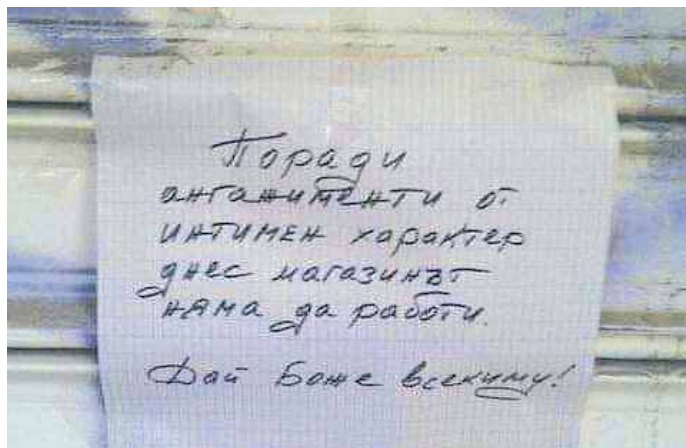 Поради
ангажименти от
интимен характер
днес магазинът
няма да работи.
Дай Боже всекиму!